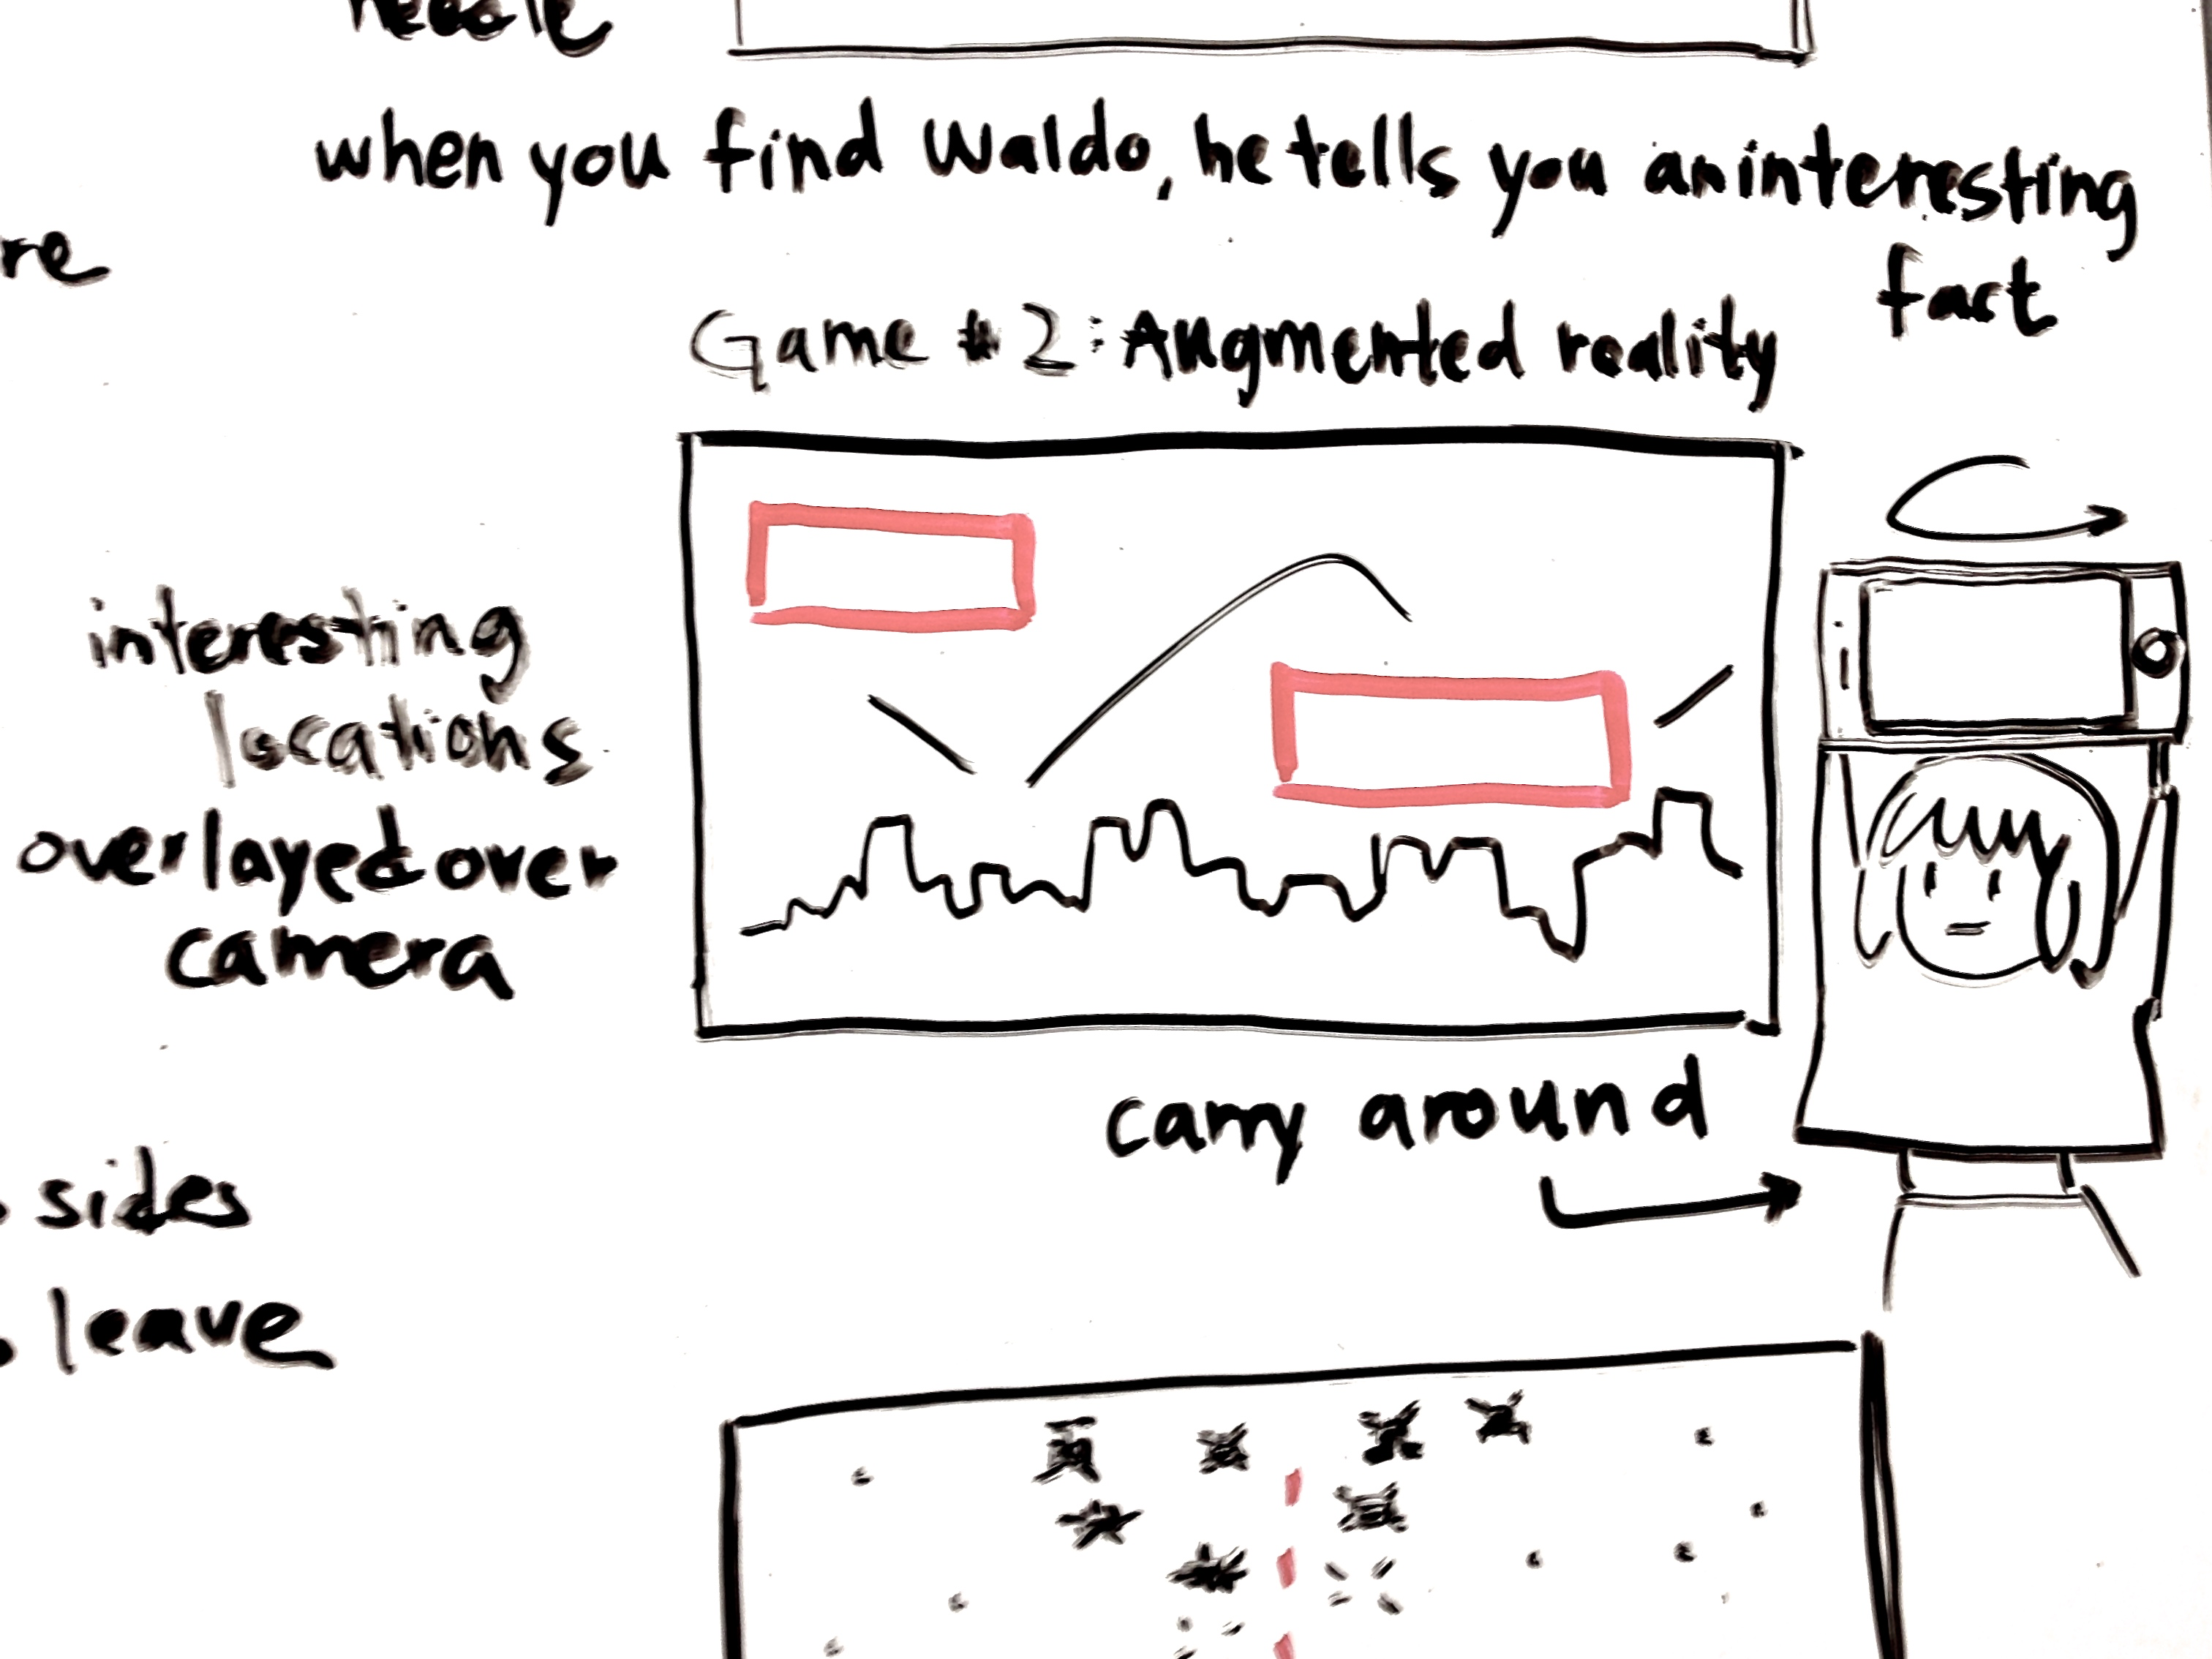 needle
when you find Waldo, he tells you an interesting
fact
re
Game #2: Augmented reality
interesting
locations
overlayed over
camera
carry around
sides
leave